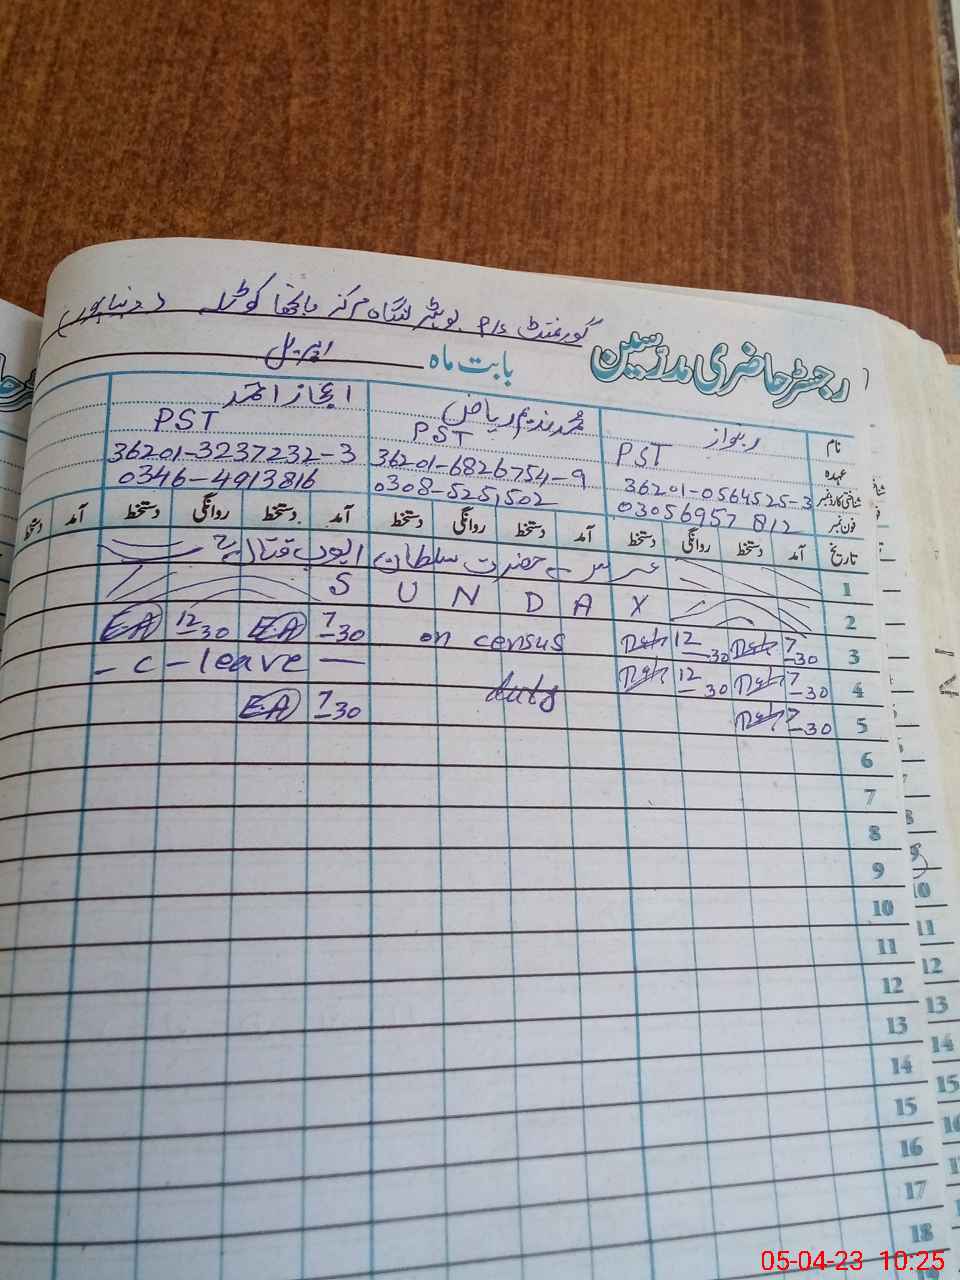 گورنمنٹ P/S بوہڑ مرکز کوٹلہ (دنیاپور)
رجسٹر حاضری مدرسین
بابت ماہ اپریل
نام ربنواز محمد ندیم ریاض اعجاز احمد
عہدہ PST PST PST
شناختی کارڈ نمبر 36201-0564525-3 36201-6826754-9 36201-3237232-3
فون نمبر 03056957812 0308-5251502 0346-4913816
تاریخ آمد دستخط روانگی دستخط آمد دستخط روانگی دستخط آمد دستخط روانگی دستخط آمد دستخط
1 عرس حضرت سلطان ایوب قتال
2 S U N D A Y
3 7-30 12-30 on census 7-30 EA 12-30 EA
4 7-30 12-30 duty - C - leave -
5 7-30 7-30 EA
6
7
8
9
10
11
12
13
14
15
16
17
18
05-04-23 10:25